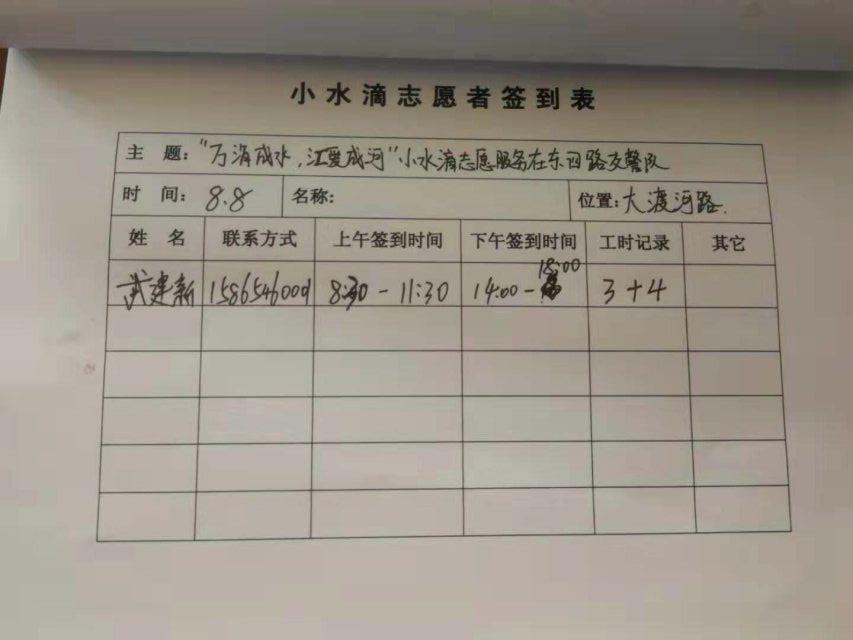 小水滴志愿者签到表
主 题:“万涓成水,江爱成河”小水滴志愿服务在东四路交警队
时 间: 8.8 名称: 位置:大渡河路.
姓 名 联系方式 上午签到时间 下午签到时间 工时记录 其它
武建新 1586546009 8:30-11:30 14:00-18:00 3+4